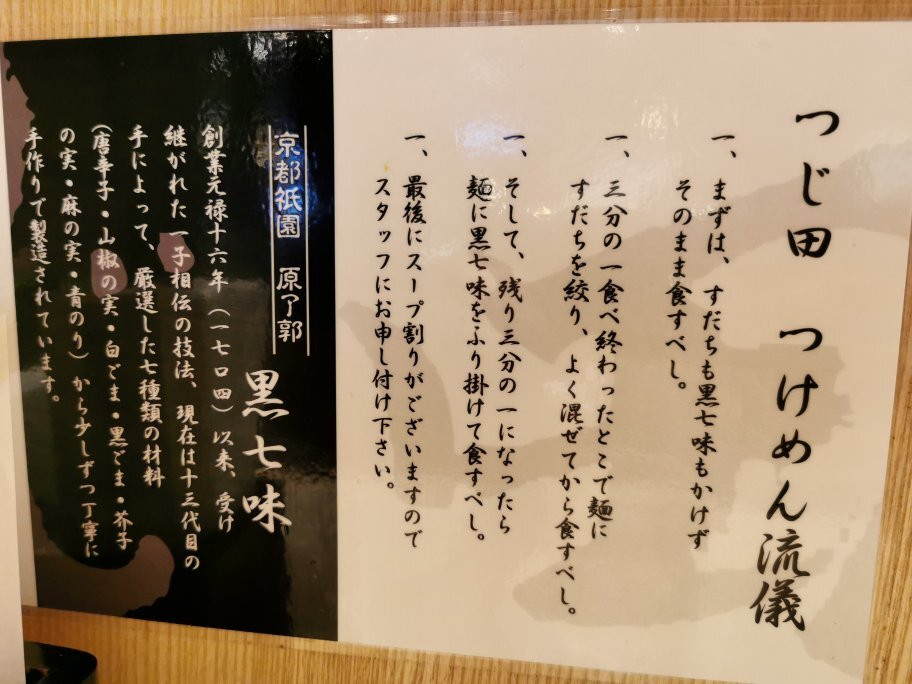 つじ田 つけめん流儀
一、まずは、すだちも黒七味もかけず
そのまま食すべし。
一、三分の一食べ終わったとこで麺に
すだちを絞り、よく混ぜてから食すべし。
一、そして、残り三分の一になったら
麺に黒七味をふり掛けて食すべし。
一、最後にスープ割りがございますので
スタッフにお申し付け下さい。
京都祇園 原了郭
黒七味
創業元禄十六年(一七〇四)以来、受け
継がれた一子相伝の技法、現在は十三代目の
手によって、厳選した七種類の材料
(唐辛子・山椒の実・白ごま・黒ごま・芥子
の実・麻の実・青のり)から少しずつ丁寧に
手作りで製造されています。